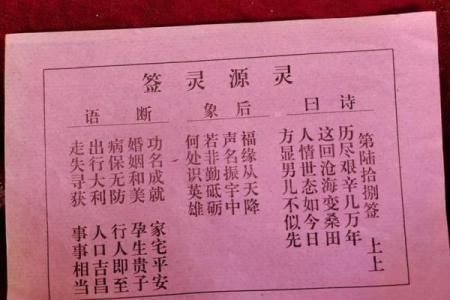 灵源灵签
诗曰
第陆拾捌签 上上
历尽艰辛几万年
这回沧海变桑田
人情世态如今日
方显男儿不似先
后象
福缘从天降
声名振宇中
若非勤砥砺
何处识英雄
断语
功名成就 家宅平安
婚姻和美 孕生贵子
病保无防 行人即至
出行大利 人口吉昌
走失寻获 事事相当